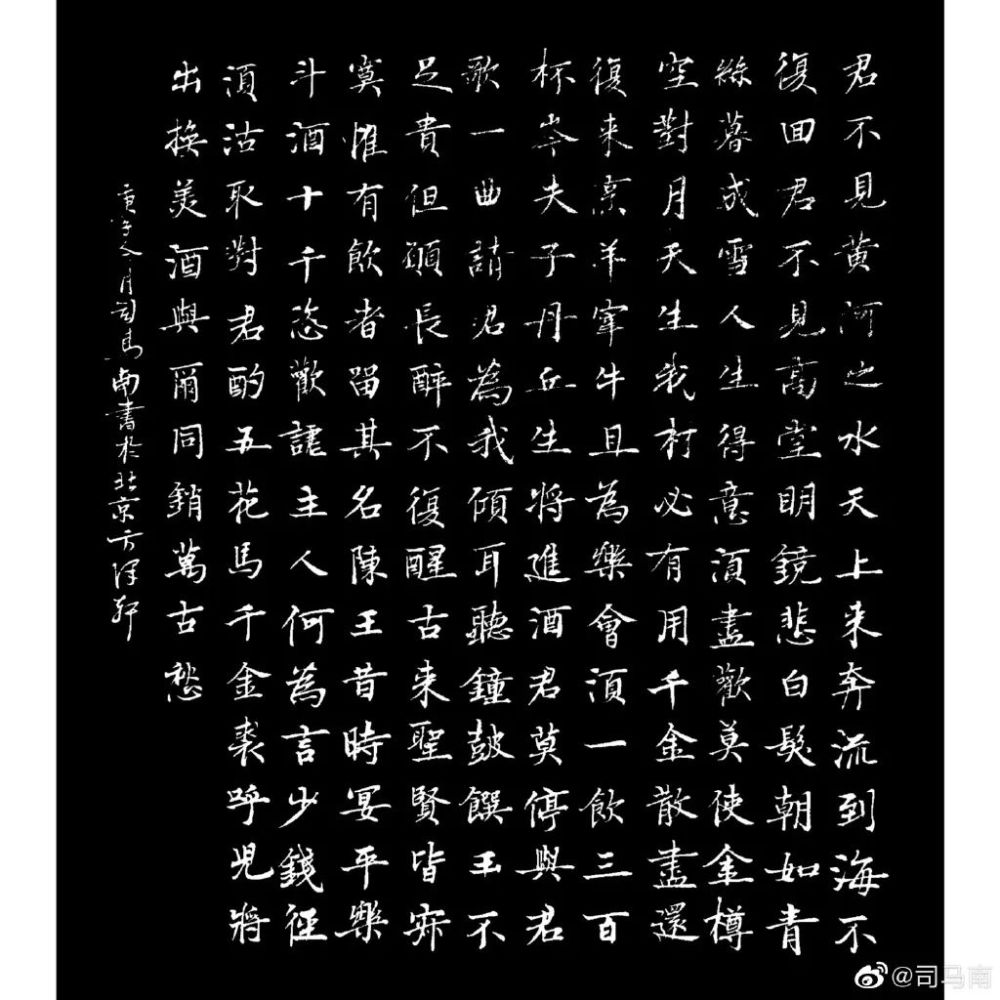 君不見黄河之水天上来奔流到海不
復回君不見高堂明鏡悲白髮朝如青
絲暮成雪人生得意須盡歡莫使金樽
空對月天生我材必有用千金散盡還
復来烹羊宰牛且為樂會須一飲三百
杯岑夫子丹丘生將進酒君莫停與君
歌一曲請君為我傾耳聽鐘鼓饌玉不
足貴但願長醉不復醒古来聖賢皆寂
寞惟有飲者留其名陳王昔時宴平樂
斗酒十千恣歡謔主人何為言少錢徑
須沽取對君酌五花馬千金裘呼兒將
出換美酒與爾同銷萬古愁
庚子月司馬南書於北京方澤軒
@司马南